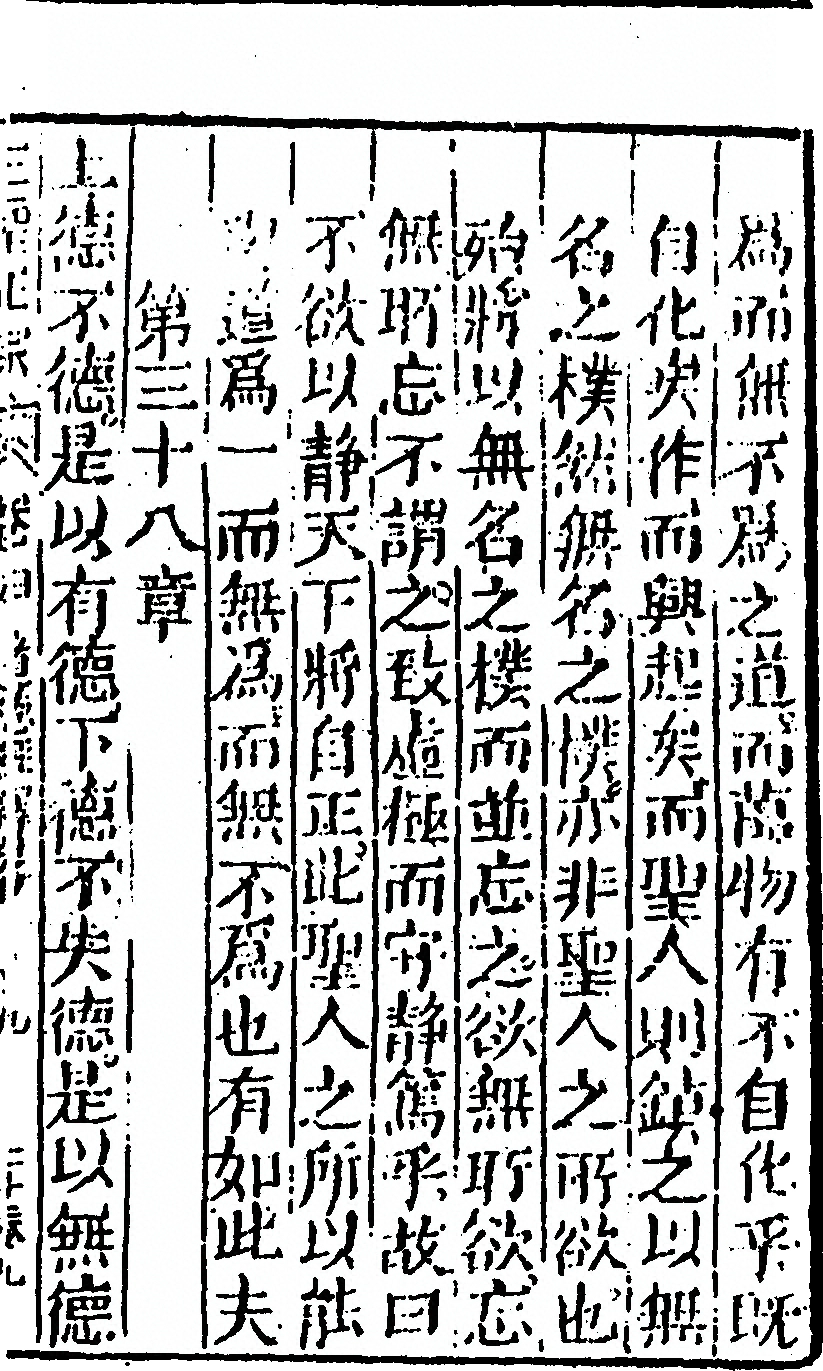 為而無不為之道而萬物有不自化乎既
自化矣作而興起矣而聖人則鎮之以無
名之樸然無名之樸亦非聖人之所欲也
始將以無名之樸而並忘之欲無所欲忘
無所忘不謂之致虛極而守静篤乎故曰
不欲以静天下將自正此聖人之所以能
道爲一而無為而無不爲也有如此夫
第三十八章
上德不德是以有德下德不失德是以無德